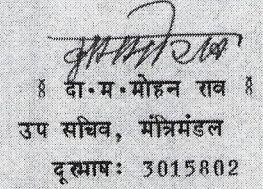 § दा·म·मोहन राव §
उप सचिव, मंत्रिमंडल
दूरभाषः 3015802